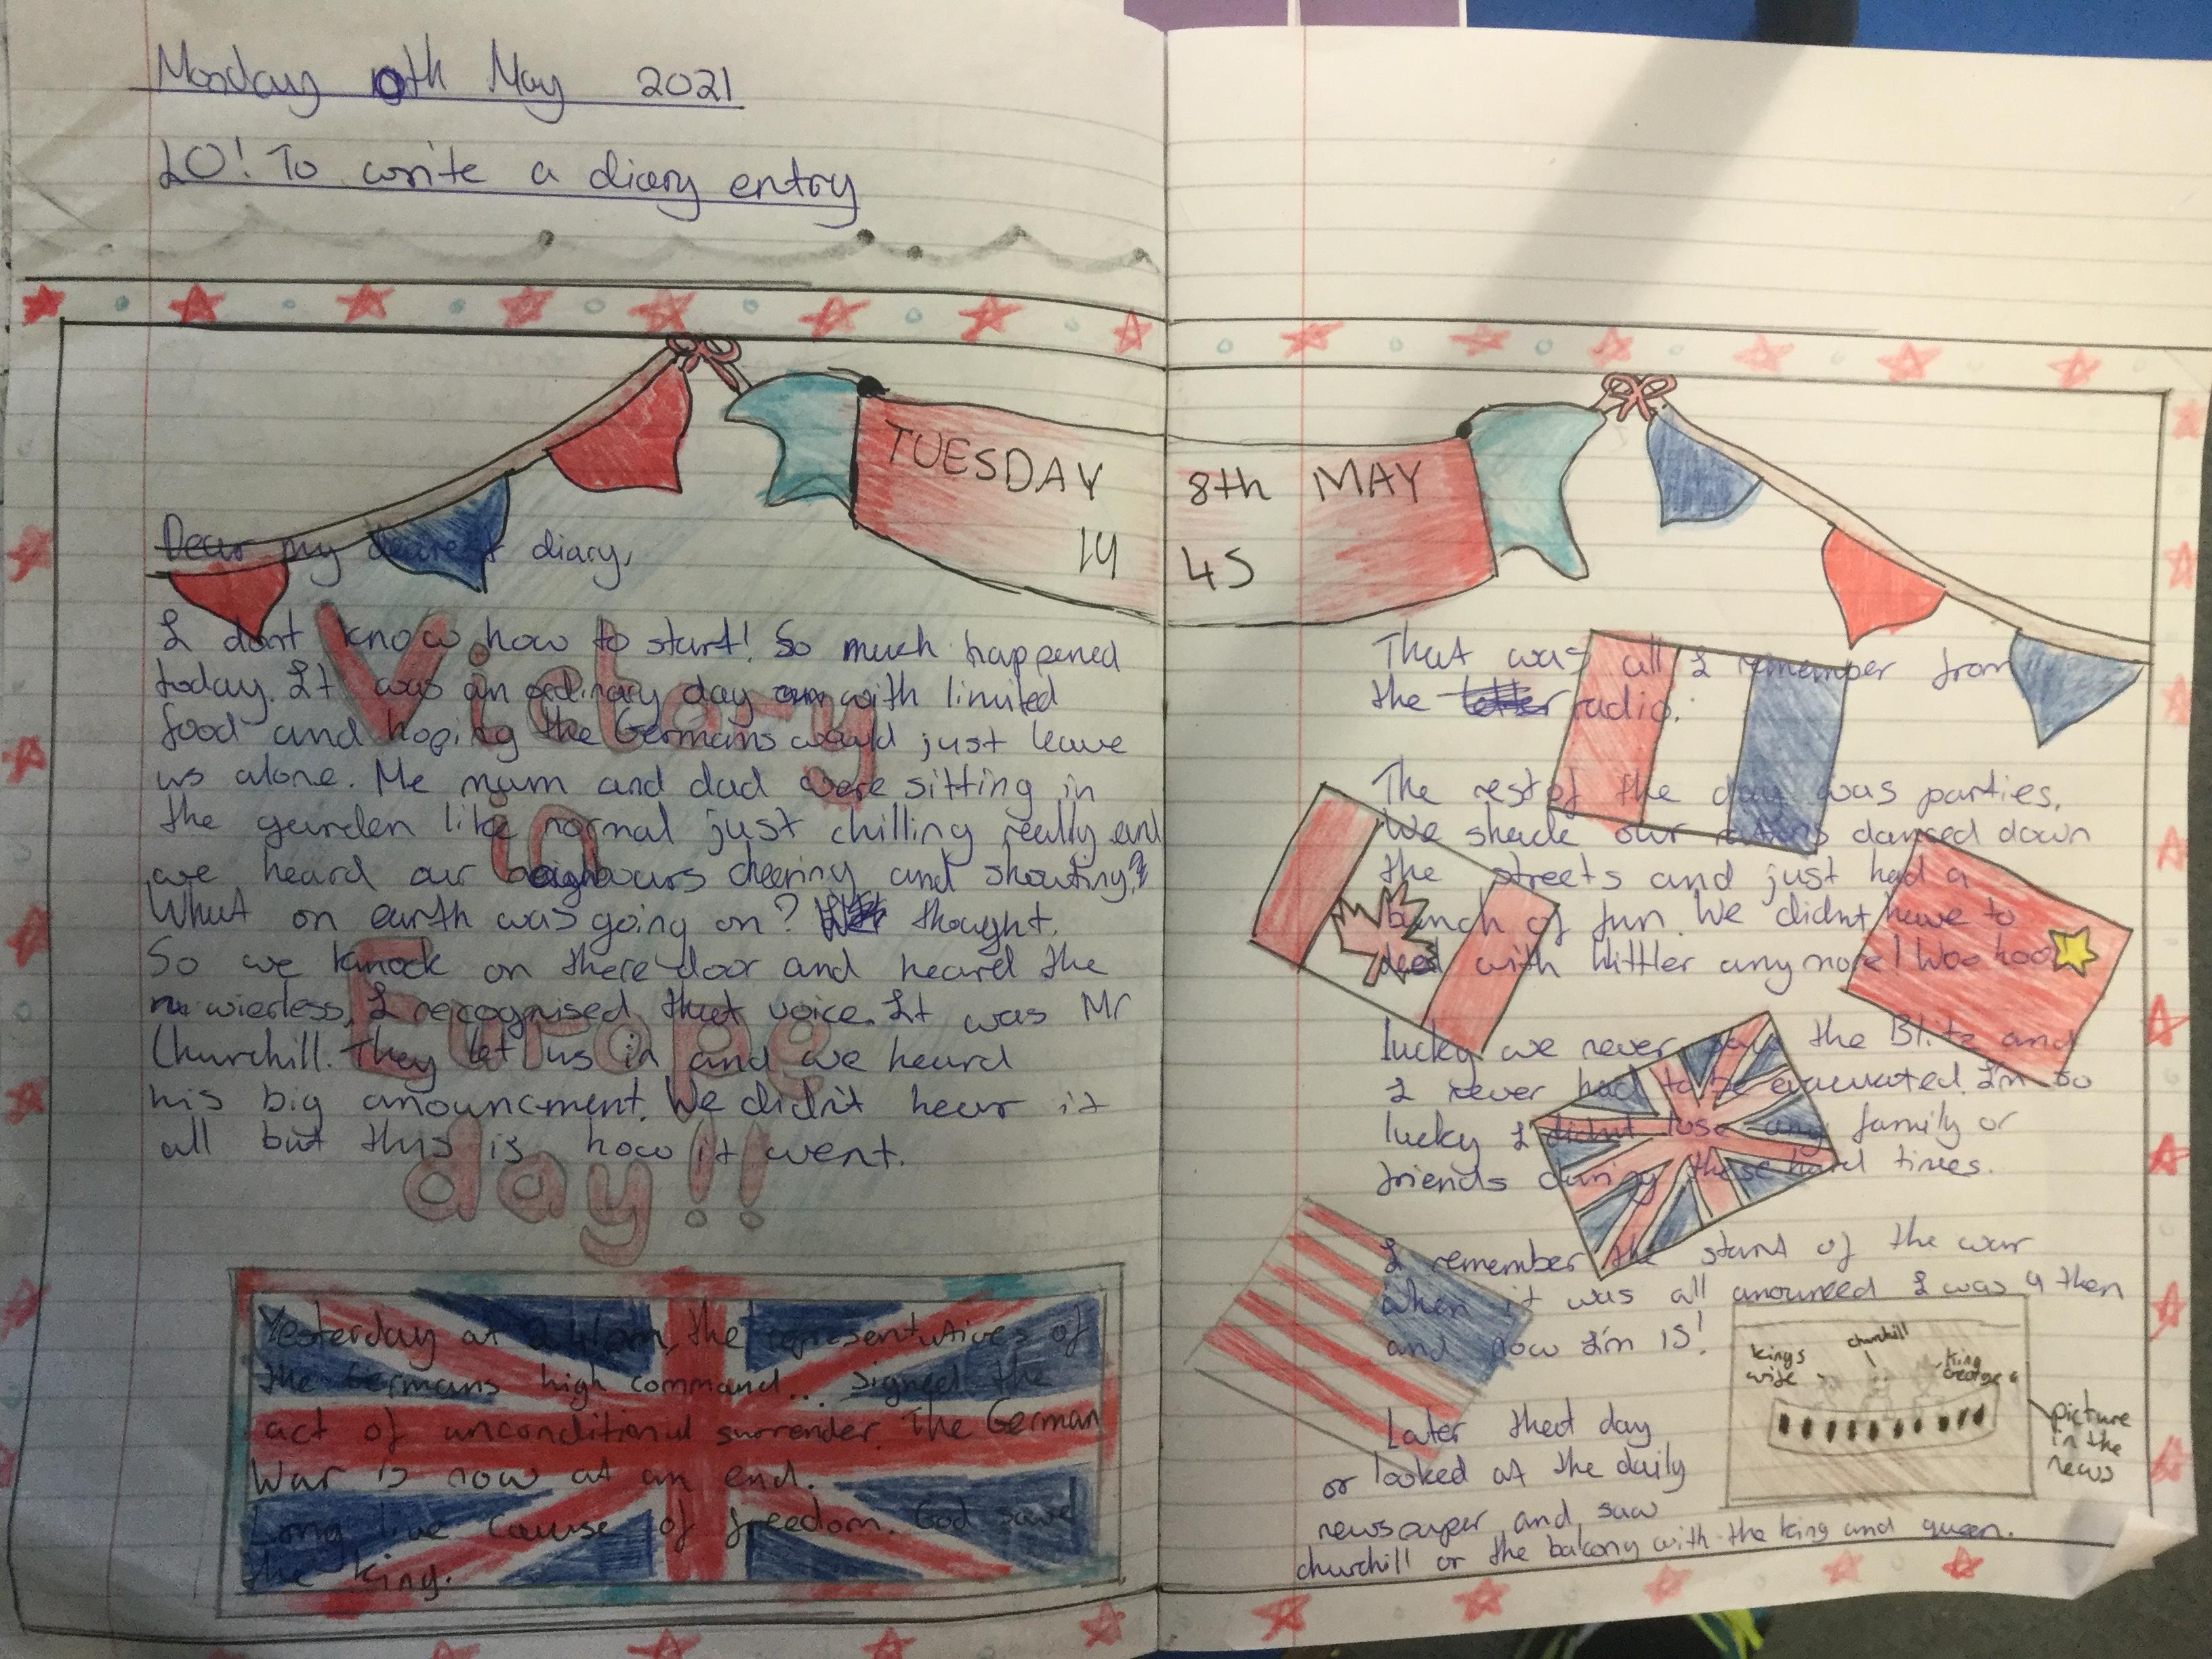 Monday 10th May 2021
LO! To write a diary entry
TUESDAY 8th MAY
19 45
Dear my dearest diary,
Victory
in
Europe
day!!
I dont know how to start! So much happened
today. It was an ordinary day with limited
food and hoping the Germans would just leave
us alone. Me mum and dad were sitting in
the garden like normal just chilling really and
we heard our neighbours cheering and shouting?
What on earth was going on? I thought.
So we knock on there door and heard the
wierless, I recognised that voice. It was Mr
Churchill. They let us in and we heard
his big anouncment. We didn't hear it
all but this is how it went.
Yesterday at 2:41am, the representatives of
the Germans high command.. signed the
act of unconditional surrender. The German
War is now at an end.
Long live cause of freedom. God save
the king.
That was all I remember from
the letter radio.
The rest of the day was parties,
We shade our rations danced down
the streets and just had a
bunch of fun. We didnt have to
deal with Hittler any more! Woo hoo
lucky we never saw the Blitz and
I never had to be evacuated. I'm so
lucky I didnt lose any family or
friends during these hard times.
I remember the start of the war
when it was all anounced I was 9 then
and now I'm 15!
Later that day
or looked at the daily
newspaper and saw
churchill or the balcony with the king and queen.
kings
wife
churchill
King
George 6
picture
in the
news